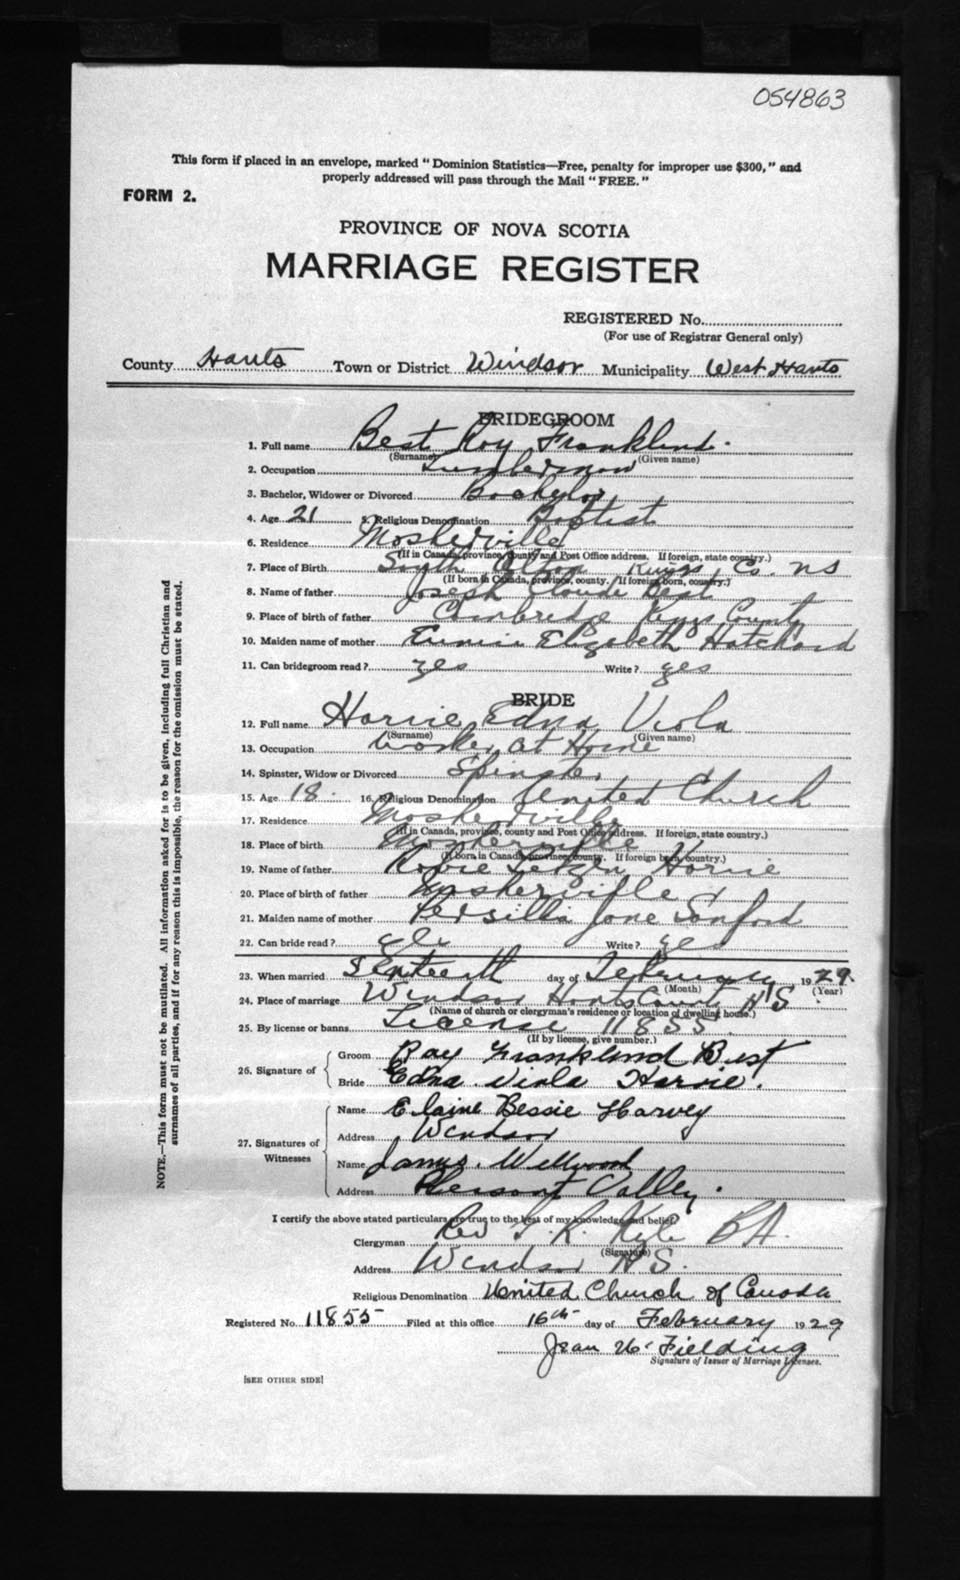 054863
This form if placed in an envelope, marked "Dominion Statistics—Free, penalty for improper use $300," and
properly addressed will pass through the Mail "FREE."
FORM 2.
PROVINCE OF NOVA SCOTIA
MARRIAGE REGISTER
REGISTERED No.
(For use of Registrar General only)
County Hants Town or District Windsor Municipality West Hants
BRIDEGROOM
1. Full name Best Roy Franklind
(Surname) (Given name)
2. Occupation Lumberman
3. Bachelor, Widower or Divorced Bachelor
4. Age 21 5. Religious Denomination Baptist
6. Residence Mosherville
(If in Canada, province, county and Post Office address. If foreign, state country.)
7. Place of Birth South Alton Kings Co. NS
(If born in Canada, province, county. If foreign born, country.)
8. Name of father Joseph Claude Best
9. Place of birth of father Cambridge Kings County
10. Maiden name of mother Eunice Elizabeth Hatchard
11. Can bridegroom read? yes Write? yes
BRIDE
12. Full name Harvie Edna Viola
(Surname) (Given name)
13. Occupation Worker at Home
14. Spinster, Widow or Divorced Spinster
15. Age 18 16. Religious Denomination United Church
17. Residence Mosherville
(If in Canada, province, county and Post Office address. If foreign, state country.)
18. Place of birth Mosherville
(If born in Canada, province, county. If foreign born, country.)
19. Name of father Robie Harvie
20. Place of birth of father Mosherville
21. Maiden name of mother Persilla Jane Sanford
22. Can bride read? yes Write? yes
23. When married day of February 1929.
(Month) (Year)
24. Place of marriage Windsor Hants County N S
(Name of church or clergyman's residence or location of dwelling house.)
25. By license or banns License 11855
(If by license, give number.)
26. Signature of
Groom Roy Franklind Best
Bride Edna Viola Harvie.
27. Signatures of Witnesses
Name Elaine Bessie Harvey
Address Windsor
Name James Wellwood
Address Pleasant Valley.
I certify the above stated particulars are true to the best of my knowledge and belief
Clergyman Rev Kyle BA.
(Signature)
Address Windsor N S.
Religious Denomination United Church of Canada
Registered No. 11855 Filed at this office 16th day of February 1929
Jean Fielding
Signature of Issuer of Marriage Licenses.
[SEE OTHER SIDE]
NOTE.—This form must not be mutilated. All information asked for is to be given, including full Christian and
surnames of all parties, and if for any reason this is impossible, the reason for the omission must be stated.